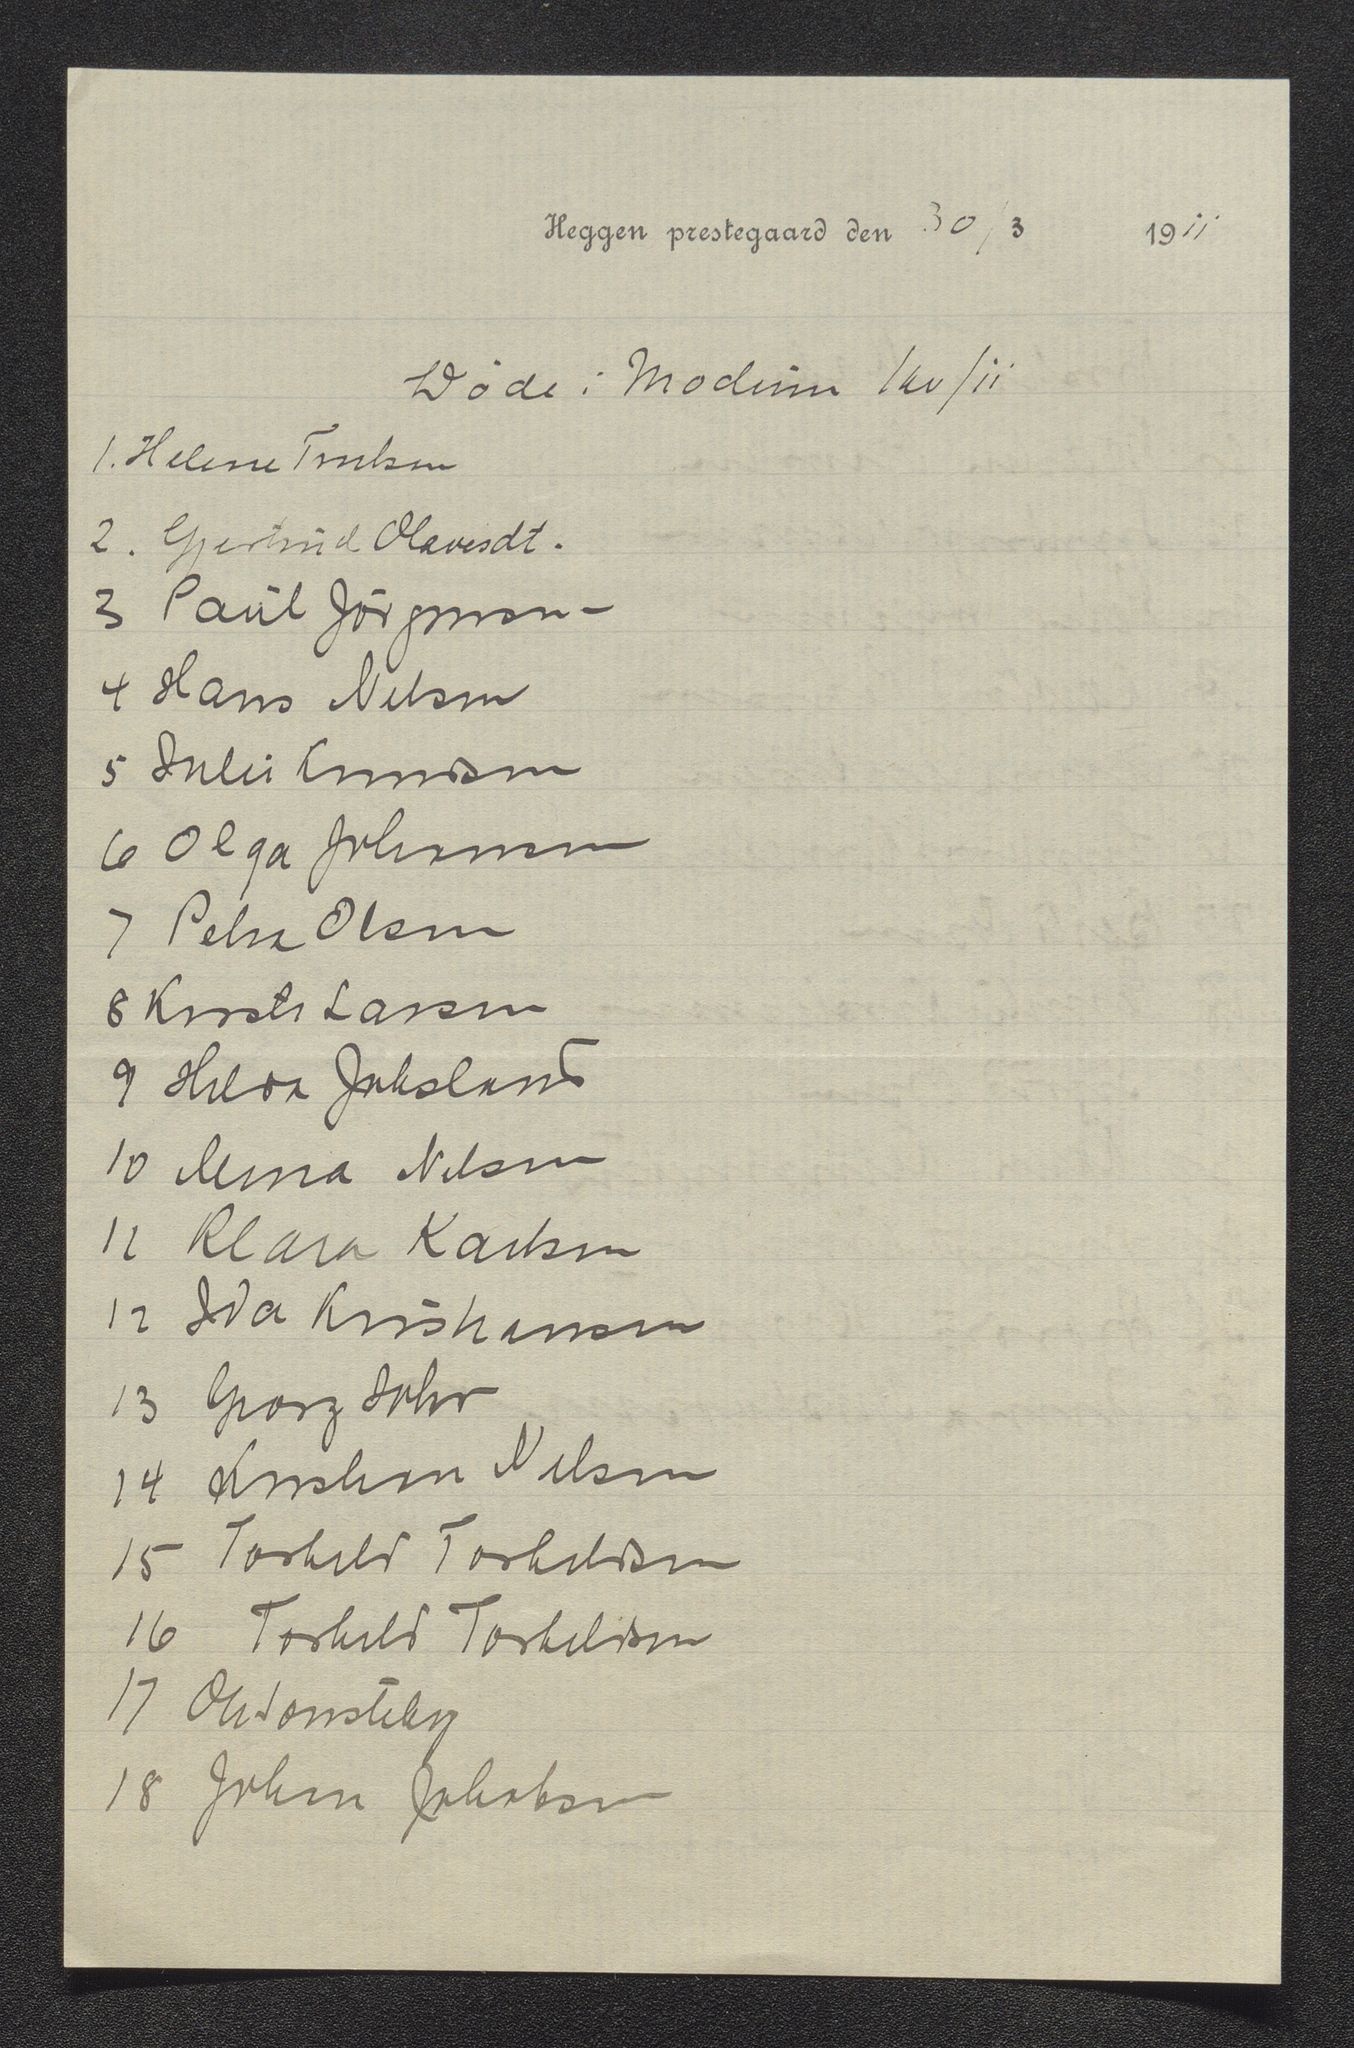 Heggen prestegaard den 30/3 1911
Døde i Modum 1kv/11
1. Helene Trulsen
2. Gjertrud Olavesdt.
3 Paul Jörgensen
4 Hans Nilsen
5 Julie Knudsen
6 Olga Johansen
7 Petra Olsen
8 Kirsti Larsen
9 Hilda Joksland
10 Anna Nilsen
11 Klara Karlsen
12 Ida Kristiansen
13 Georg
14 Kristian Nilsen
15 Torkild Torkildsen
16 Torkild Torkildsen
17
18 Johan Jakobsen